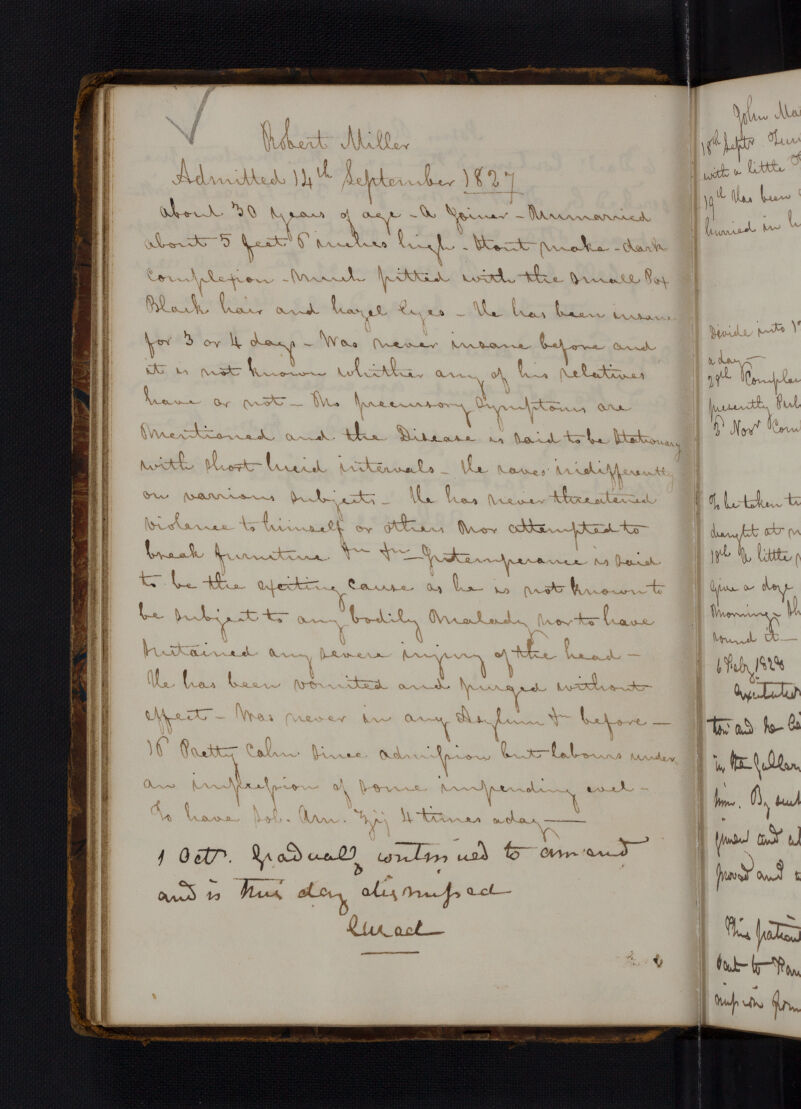 Robert Miller
Admitted 14th September 1827
about 30 years of age - a Joiner - Unmarried
about 5 feet 6 inches high - Stout make - dark
Complexion - Much pitted with the Small Pox
Black hair and hazel Eyes - He has been insane
for 3 or 4 days - Was never insane before and
it is not known whether any of his relatives
have or not - No precursory Symptoms are
Mentioned and the Disease is said to be Stationary
with short lucid intervals - He raves indifferently
on various subjects - He has never threatened
violence to himself or others Nor attempted to
break furniture &c &c - Intemperance is said
to be the exciting Cause as he is not known to
be subject to any bodily Malady nor to have
sustained any severe injury of the head -
He has been vomited and purged without
effect - Was never in any Asylum &c before -
16 Pretty Calm since admission but labours under
an impression of some impending evil -
To have Sol. Am. ʒij 4 times a day -
1 Octr. Gradually continued to amend
and is this day dismissed
Cured
John
18th Septr
with a little
19th Has been
hurried in
Divide into
a day -
28th
presently
3 Novr
To be taken
draught at
18th A little
Give a doze
Morning
round it -
6 Feby 1828
in the
him. By
and
proved and
This patient
mission from